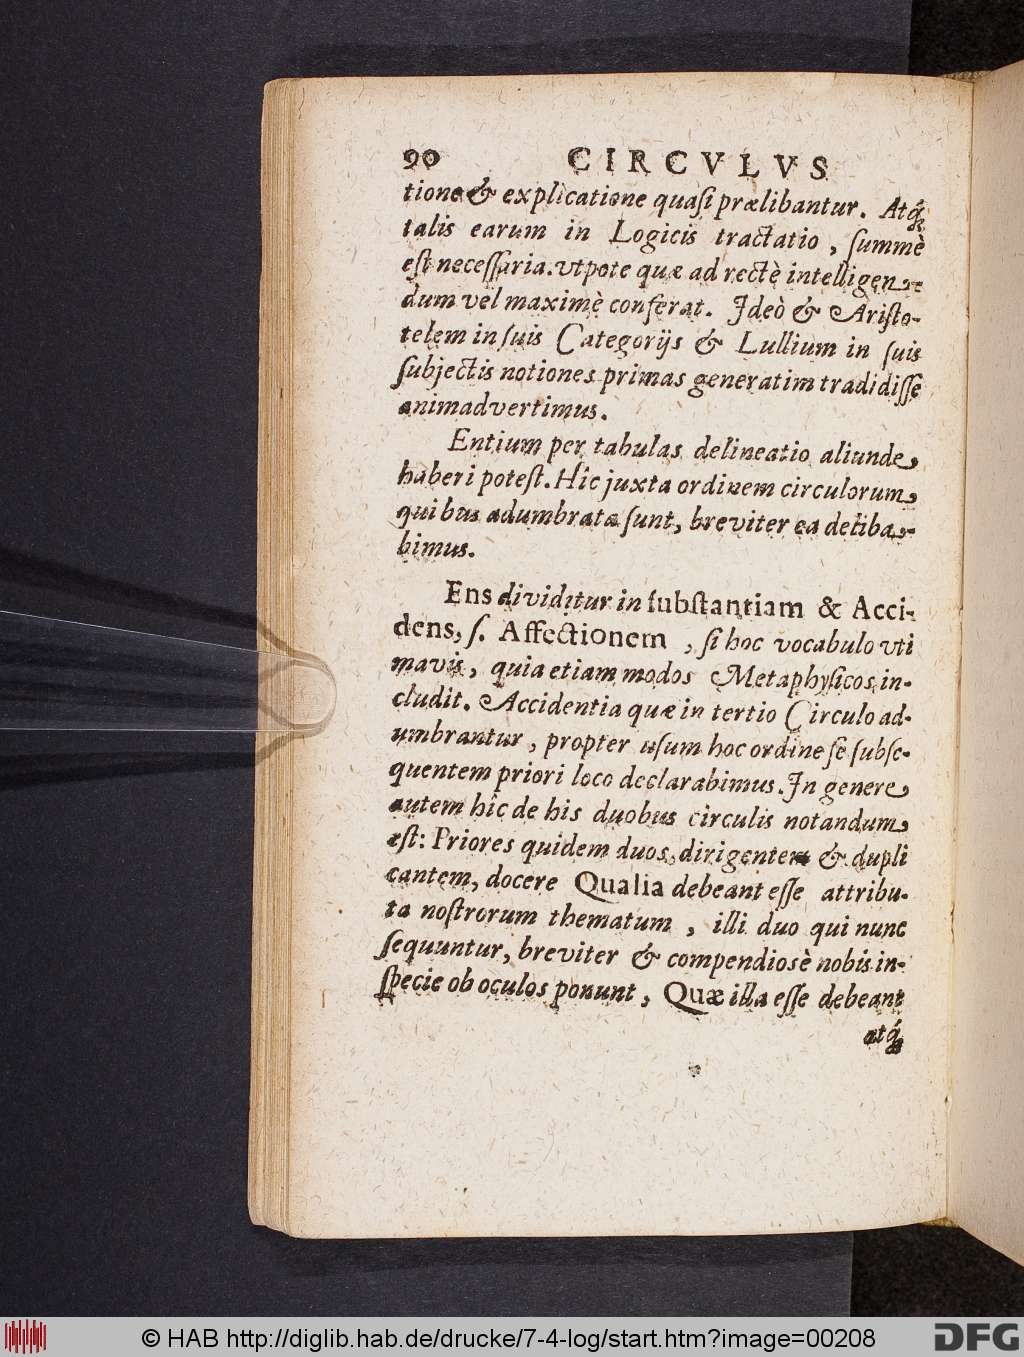 90 CIRCVLVS
tione & explicatione quasi prælibantur. Atq́;
talis earum in Logicis tractatio, summè
est necessaria. vtpote quæ ad rectè intelligen-
dum vel maximè conferat. Ideò & Aristo-
telem in suis Categorijs & Lullium in suis
subjectis notiones primas generatim tradidisse
animadvertimus.
Entium per tabulas delineatio aliunde
haberi potest. Hic juxta ordinem circulorum
quibus adumbratæ sunt, breviter ea deliba-
bimus.
Ens dividitur in substantiam & Acci-
dens, s. Affectionem, si hoc vocabulo vti
mavis, quia etiam modos Metaphysicos in-
cludit. Accidentia quæ in tertio Circulo ad-
umbrantur, propter usum hoc ordine se subse-
quentem priori loco declarabimus. In genere
autem hîc de his duobus circulis notandum
est: Priores quidem duos, dirigentem & dupli
cantem, docere Qualia debeant esse attribu-
ta nostrorum thematum, illi duo qui nunc
sequuntur, breviter & compendiosè nobis in-
specie ob oculos ponunt, Quæ illa esse debeant
atq́;
© HAB http://diglib.hab.de/drucke/7-4-log/start.htm?image=00208
DFG